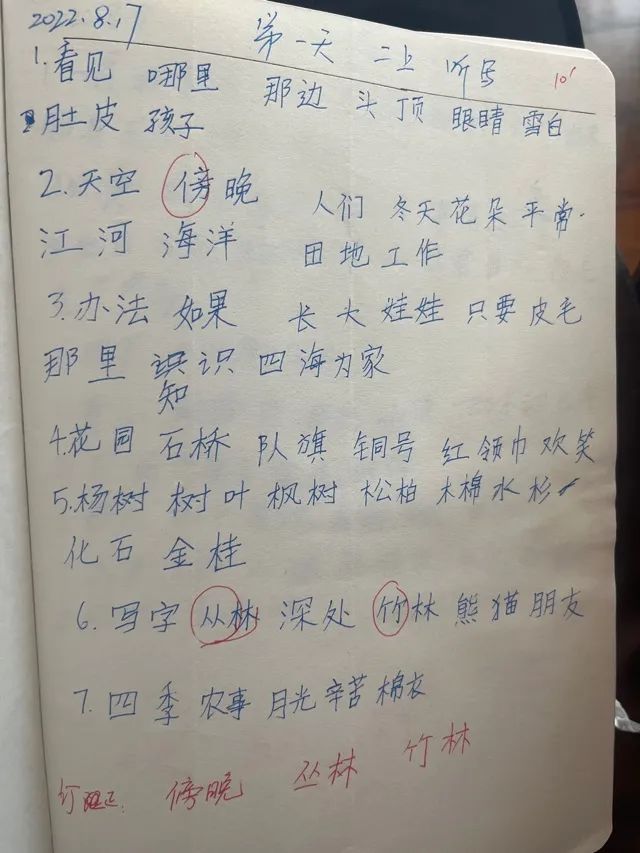 2022.8.17 第一天 二上 听写 10'
1.看见 哪里 那边 头顶 眼睛 雪白
肚皮 孩子
2.天空 傍晚 人们 冬天 花朵 平常
江河 海洋 田地 工作
3.办法 如果 长大 娃娃 只要 皮毛
那里 识 四海为家
知
4.花园 石桥 队旗 铜号 红领巾 欢笑
5.杨树 树叶 枫树 松柏 木棉 水杉
化石 金桂
6.写字 从林 深处 竹林 熊猫 朋友
7.四季 农事 月光 辛苦 棉衣
订正: 傍晚 丛林 竹林